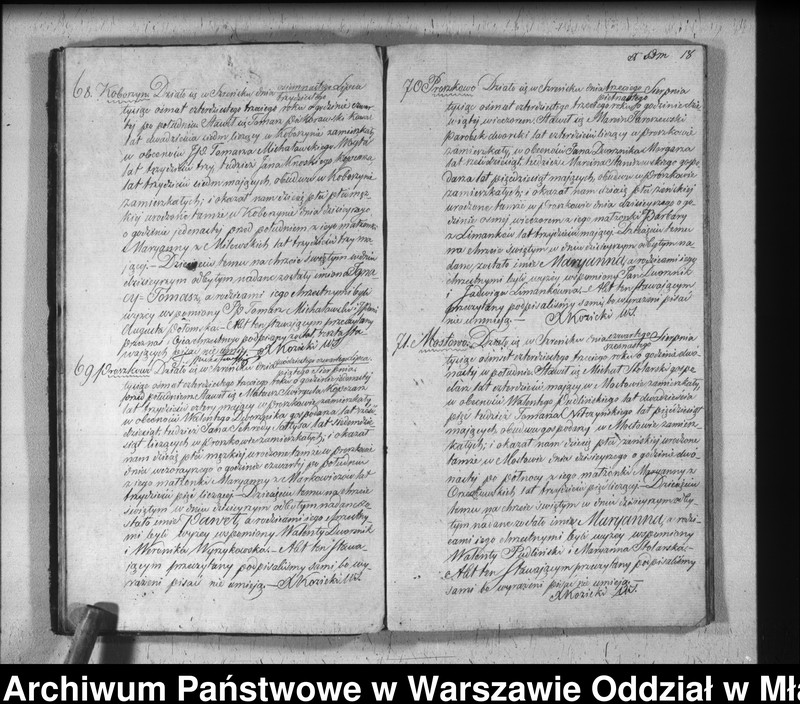 68. Koborzyn Działo się w Szreńsku dnia Lipca
tysiąc ośmset czterdziestego trzeciego roku o godzinie czwar
tej po południu Stawił się Tomasz
lat dwadzieścia siedm liczący w Koborzynie zamieszkały
w obecności JP. Tomasza Michałowskiego Wójta
lat trzydzieści trzy, tudzież Jana
lat trzydzieści siedm mających, obudwu w Koborzynie
zamieszkałych; i okazał nam dziecię płci męz-
kiej urodzone tamże w Koborzynie dnia dzisiejszego
o godzinie jedenastej przed południem z jego małżonki
Maryanny z lat trzydzieści trzy ma
jącej. Dziecięciu temu na chrzcie świętym w dniu
dzisiejszym odbytym nadane zostały imiona Igna
cy Tomasz, a rodzicami jego chrzestnymi byli
wyżej wspomniony JP. Tomasz Michałowski i
Augusta Akt ten stawającym przeczytany
przez nas i Ojca chrzestnego podpisany został reszta sta
wających pisać nie umieją. X Kozicki
69. Proszkowo Działo się w Szreńsku dnia
tysiąc ośmset czterdziestego trzeciego roku o godzinie
przed południem Stawił się Mateusz
lat trzydzieści cztery mający w Proszkowie zamieszkały
w obecności Walentego Dwornika gospodarza lat
tudzież Jana Sołtysa lat
liczących w Proszkowie zamieszkałych; i okazał
nam dziecię płci męzkiej urodzone tamże w Proszkowie
dnia wczorajszego o godzinie czwartej po południu
z jego małżonki Maryanny z Mańkowiczów lat
trzydzieści pięć liczącej. Dziecięciu temu na chrzcie
świętym w dniu dzisiejszym odbytym nadane zo
stało imie Paweł, a rodzicami jego chrzestny
mi byli wyżej wspomniony Walenty Dwornik
i Weronika Akt ten stawa-
jącym przeczytany podpisaliśmy sami bo wy
rażeni pisać nie umieją. X Kozicki
18
70 Proszkowo Działo się w Szreńsku dnia trzeciego Sierpnia
piętnastego
tysiąc ośmset czterdziestego trzeciego roku o godzinie dzie
wiątej wieczorem Stawił się Marcin
Parobek dworski lat czterdzieści liczący w Proszkowie
zamieszkały, w obecności Jana Dwornika
lat tudzież Marcina gospo
darza lat pięćdziesiąt mających, obudwu w Proszkowie
zamieszkałych; i okazał nam dziecię płci żeńskiej
urodzone tamże w Proszkowie dnia dzisiejszego o go
dzinie ósmej wieczorem z jego małżonki Barbary
z Limanków lat trzydzieści mającej. Dziecięciu temu
na chrzcie świętym w dniu dzisiejszym odbytym na
dane zostało imie Maryanna, a rodzicami jego
chrzestnymi byli wyżej wspomniony Jan Dwornik
i Jadwiga Limankówna. Akt ten stawającym
przeczytany podpisaliśmy sami bo wyrażeni pisać
nie umieją. X Kozicki
71. Mostowo. Działo się w Szreńsku dnia czwartego Sierpnia
szesnastego
tysiąc ośmset czterdziestego trzeciego roku o godzinie dwu
nastej w południe Stawił się Michał Stolarski
lat czterdzieści mający w Mostowie zamieszkały,
w obecności Walentego Pudlińskiego lat dwadzieścia
pięć tudzież Tomasza lat pięćdziesiąt
mających, obudwu gospodarzy w Mostowie zamiesz-
kałych; i okazał nam dziecię płci żeńskiej urodzone
tamże w Mostowie dnia dzisiejszego o godzinie dwu
nastej po północy z jego małżonki Maryanny z
lat trzydzieści pięć liczącej. Dziecięciu
temu na chrzcie świętym w dniu dzisiejszym odby-
tym nadane zostało imie Maryanna, a rodzi-
cami jego chrzestnymi byli wyżej wspomniony
Walenty Pudliński i Maryanna Stolarska.
Akt ten stawającym przeczytany podpisaliśmy
sami bo wyrażeni pisać nie umieją.
X Kozicki
Archiwum Państwowe w Warszawie Oddział w Mła